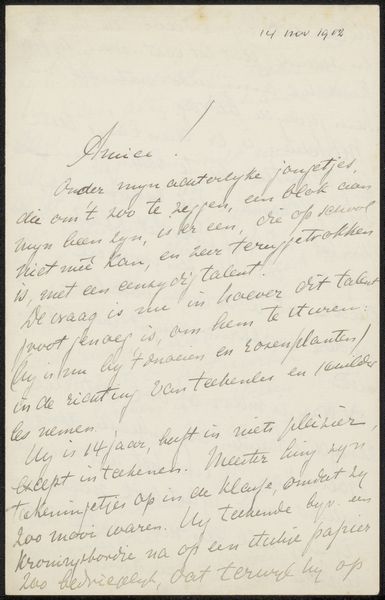 14 nov 1902
Amice!
Onder mijn achterlijke jongetjes,
die om 't zoo te zeggen, een blok aan
mijn been zijn, is er een, die op school
niet meê kan, en zeer teruggetrokken
is, met een eenzijdig talent.
De vraag is nu in hoever dit talent
groot genoeg is, om hem te sturen:
hij is nu bij ' en rozenplanten/
in de richting van teekenles en schilder
les nemen.
Hij is 14 jaar, heeft in niets pleizier,
except in teekenen. Meester hing zijn
teekeningetjes op in de klasse, omdat zij
zoo mooi waren. Hij teekende bijv. een
Kroningsbordje na op een stukje papier
zoo bedriegelijk, dat terwijl hij op